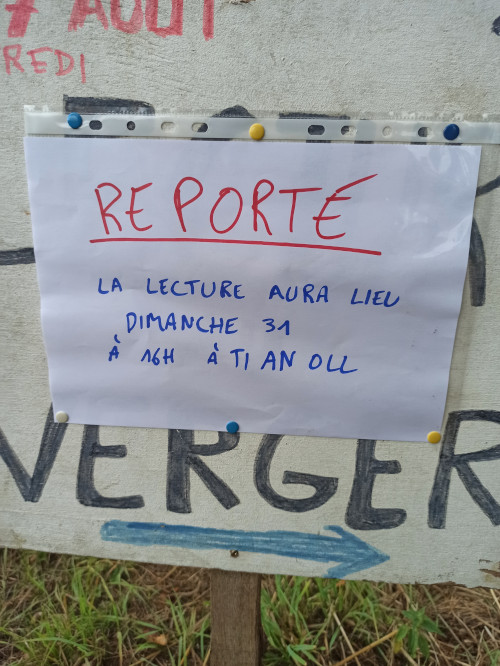 7 AOÛT
REDI
REPORTÉ
LA LECTURE AURA LIEU
DIMANCHE 31
À 16H À TI AN OLL
VERGER